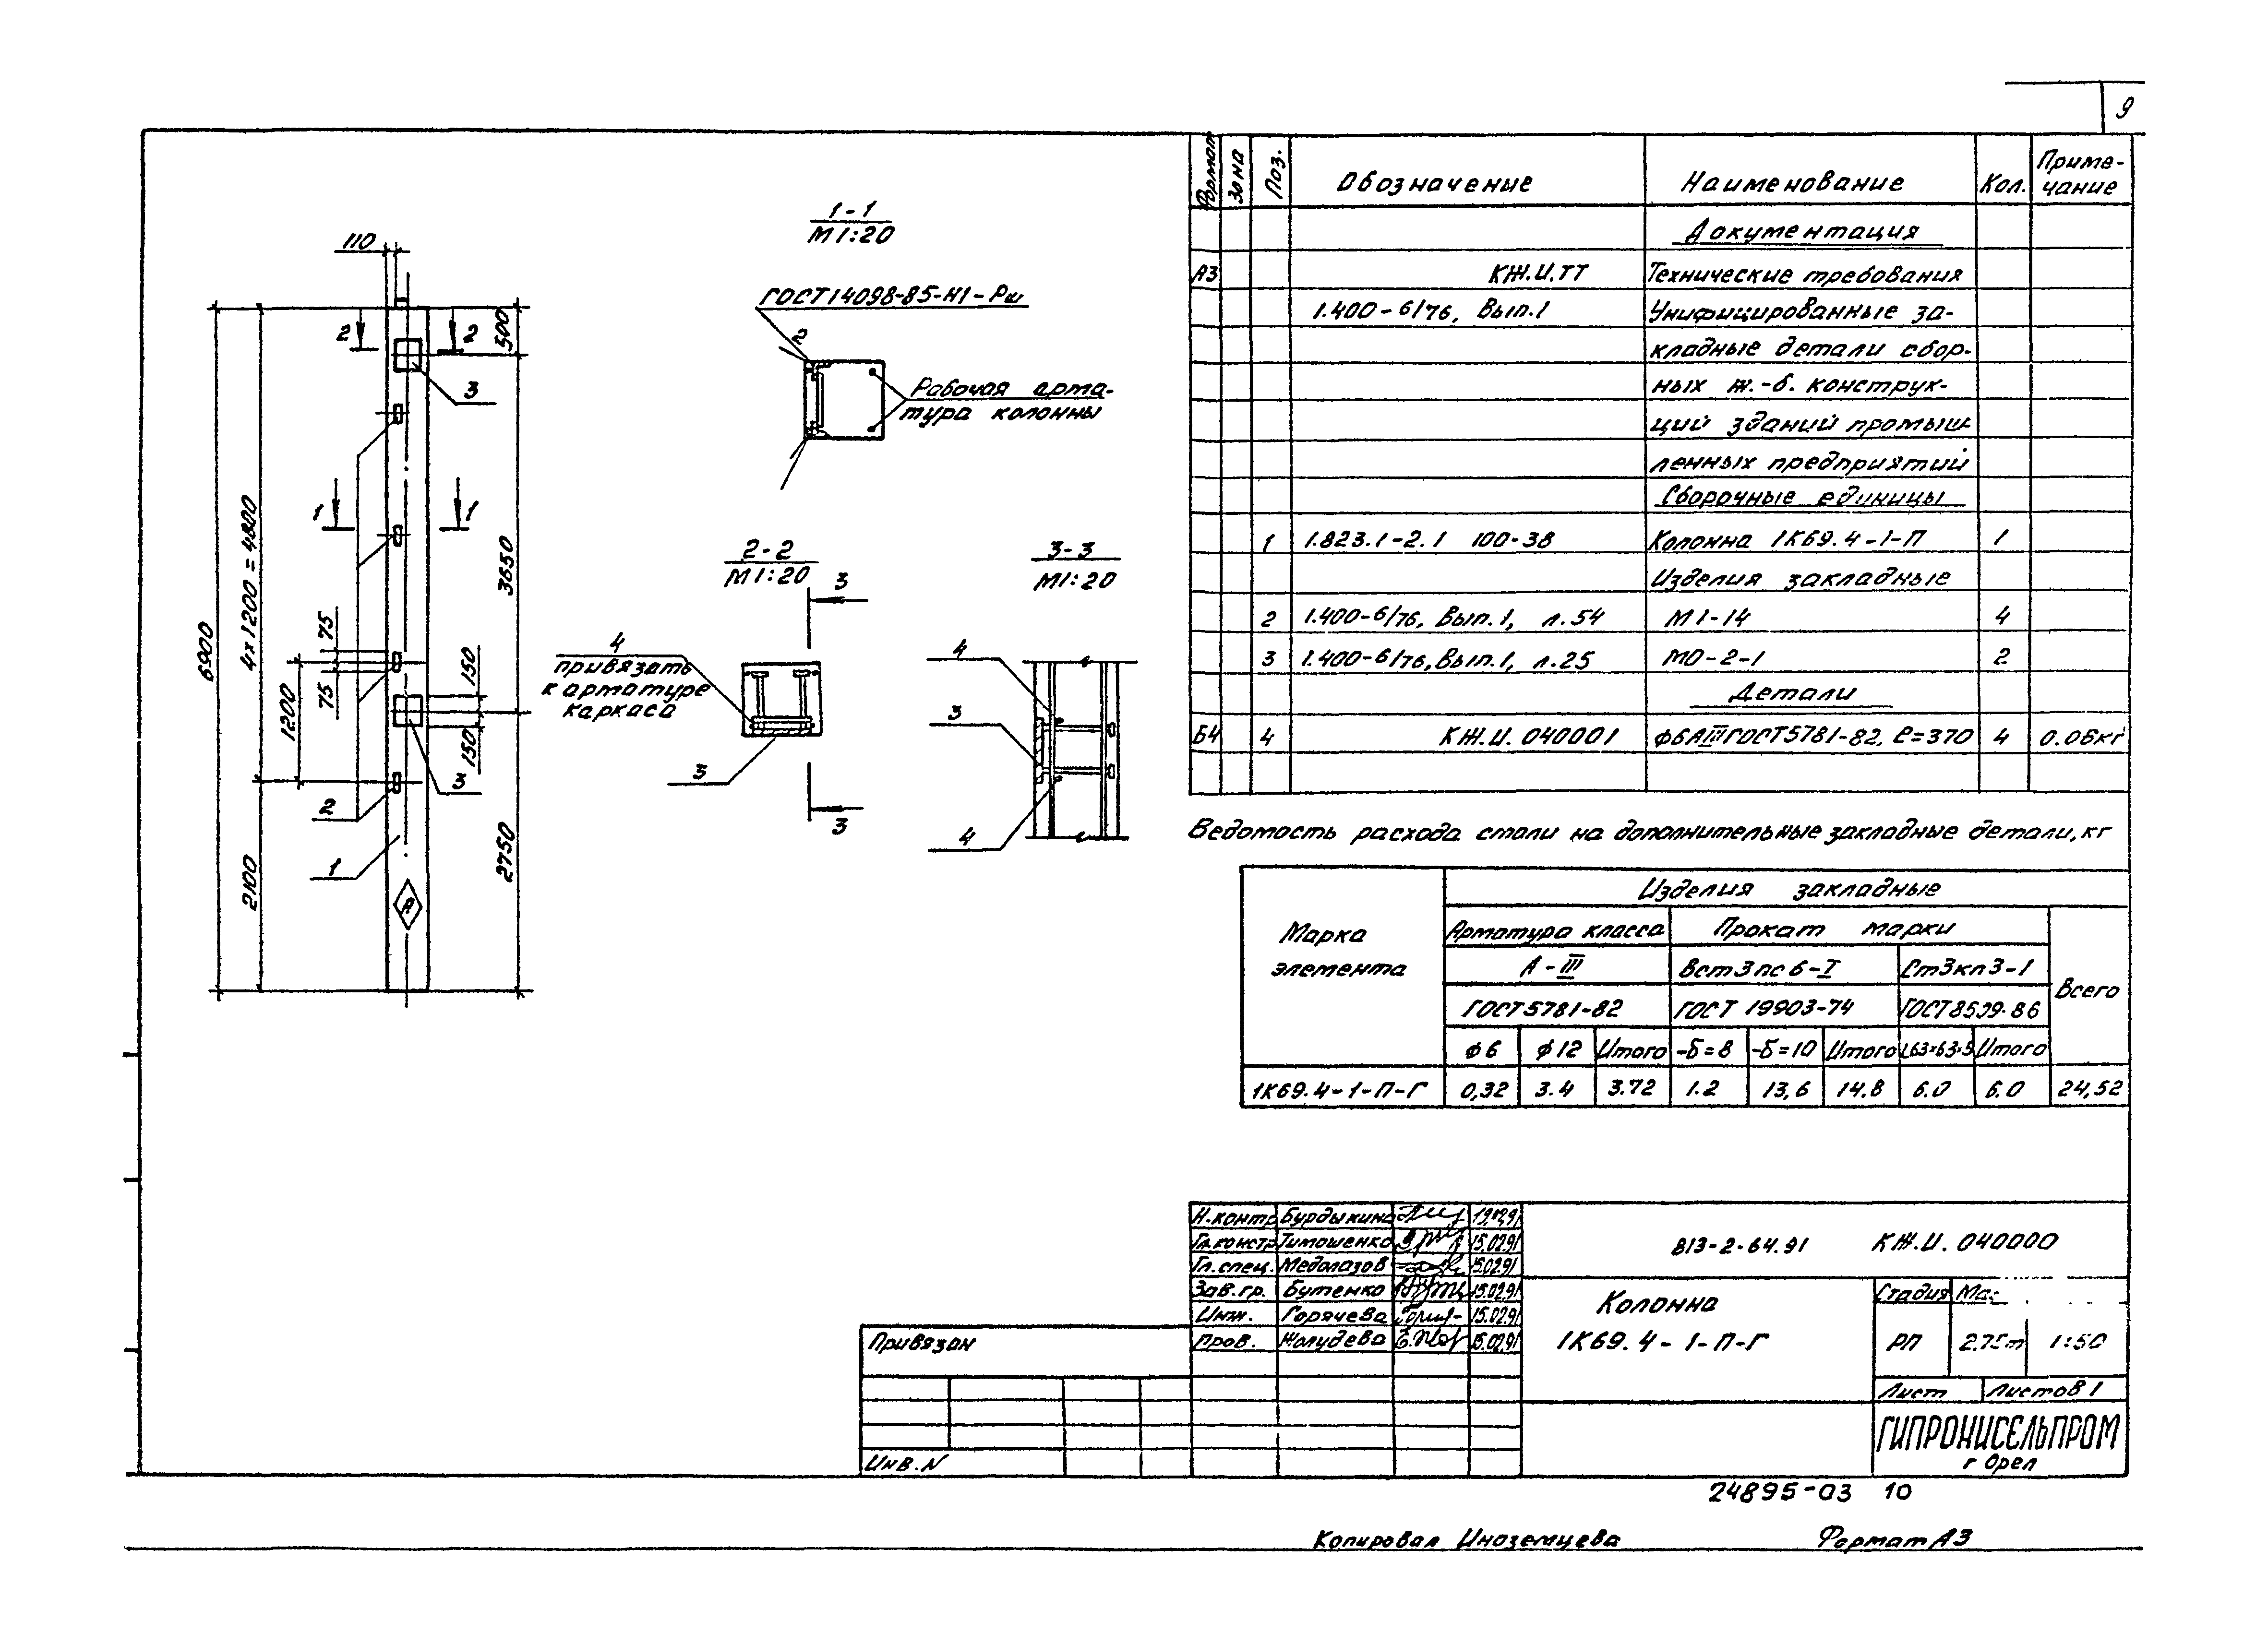 9
110
500
2
2
3
1
1
6900
4x1200 = 4800
3650
75
75
1200
150
150
3
2
1
2100
2750
А
1-1
М 1:20
ГОСТ14098-85-Н1-Рш
2
Рабочая арма-
тура колонны
2-2
М 1:20
3
3-3
М1:20
4
привязать
к арматуре
каркаса
3
3
4
3
4
Формат Зона Поз. Обозначение Наименование Кол. Приме-
чание
Документация
А3 КЖ.И.ТТ Технические требования
1.400-6/76, Вып.1 Унифицированные за-
кладные детали сбор-
ных ж.-б. конструк-
ций зданий промыш-
ленных предприятий
Сборочные единицы
1 1.823.1-2.1 100-38 Колонна 1К69.4-1-П 1
Изделия закладные
2 1.400-6/76, Вып.1, л.54 М1-14 4
3 1.400-6/76, Вып.1, л.25 МО-2-1 2
Детали
Б4 4 КЖ.И. 040001 ф6АIII ГОСТ5781-82, ℓ=370 4 0.06кг
Ведомость расхода стали на дополнительные закладные детали, кг
Марка
элемента
Изделия закладные
Арматура класса Прокат марки
А-III Вст3пс6-I Ст3кп3-1
Всего
ГОСТ5781-82 ГОСТ 19903-74 ГОСТ8509-86
ф6 ф12 Итого -Б=8 -Б=10 Итого L63×63×5 Итого
1К69.4-1-П-Г 0,32 3.4 3.72 1.2 13,6 14.8 6.0 6.0 24,52
Н.контр Бурдыкина
Гл.констр Тимошенко 15.02.91
Гл.спец. Медолазов 15.02.91
Зав.гр. Бутенко 15.02.91
Инж. Горячева 15.02.91
пров. Жолудева 15.02.91
813-2-64.91 КЖ.И. 040000
Колонна
1К69.4-1-П-Г
Стадия Мас
РП 2.75т 1:50
Лист Листов 1
ГИПРОНИСЕЛЬПРОМ
г Орел
Привязан
Инв.N
24895-03 10
Копировал Иноземцева Формат А3